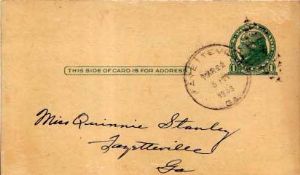 THIS SIDE OF CARD IS FOR ADDRESS
FAYETTEVILLE
GA.
Miss Quinnie Stanley
Fayetteville
Ga